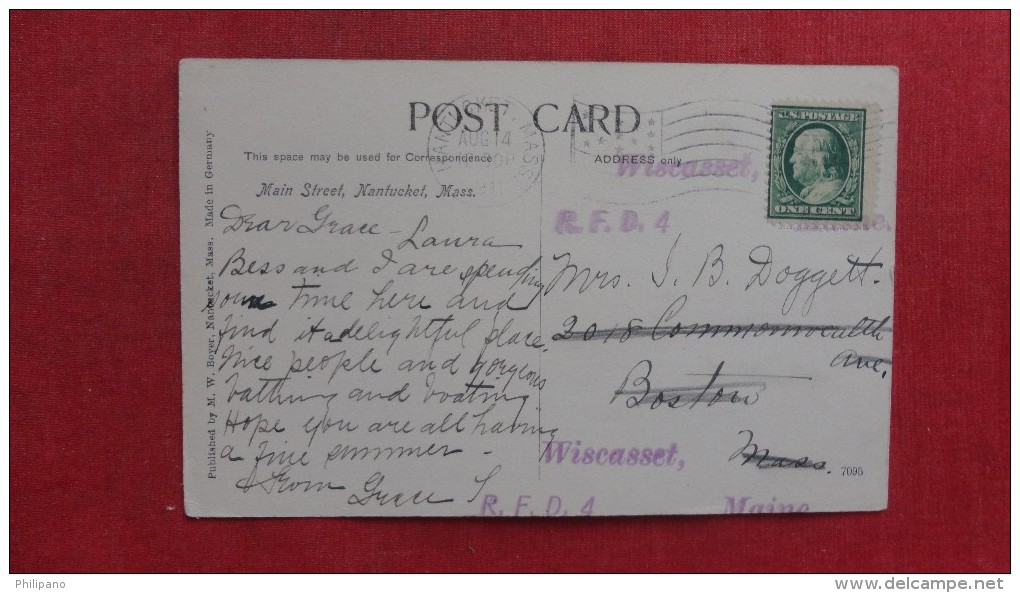 POST CARD
NANTUCKET, MASS.
AUG 14
U.S. POSTAGE
ONE CENT
This space may be used for Correspondence
ADDRESS only
Main Street, Nantucket, Mass.
Published by M. W. Boyer, Nantucket, Mass. Made in Germany
Dear Grace - Laura
Bess and I are spending
some time here and
find it a delightful place.
Nice people and gorgeous
bathing and boating
Hope you are all having
a fine summer -
From Grace S.
Wiscasset,
R. F. D. 4
Mrs. J. B. Doggett.
2018 Commonwealth
Ave.
Boston
Mass.
7095
Wiscasset,
R. F. D. 4 Maine
Philipano
http://www.delcampe.net